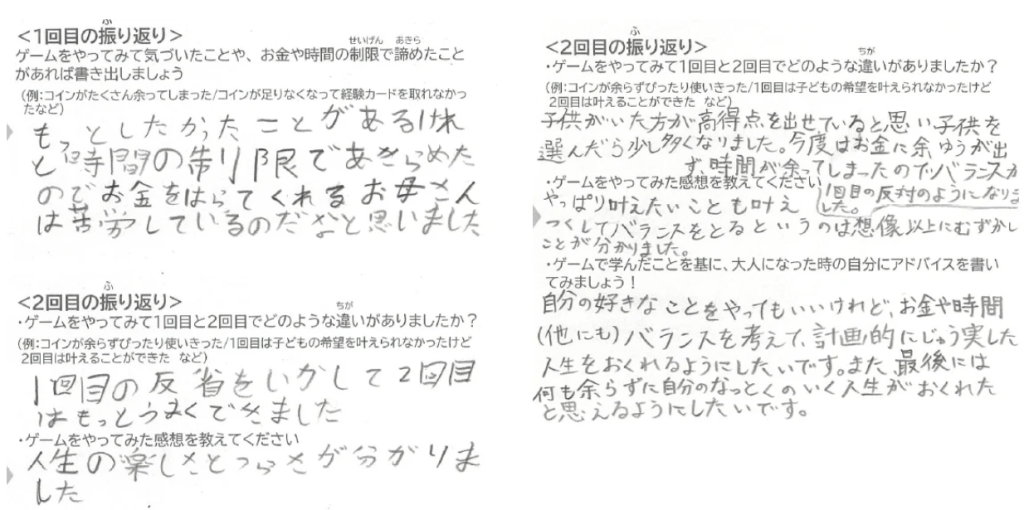 <1回目の振り返り>
ふ
ゲームをやってみて気づいたことや、お金や時間の制限で諦めたこと
せいげん あきら
があれば書き出しましょう
(例:コインがたくさん余ってしまった/コインが足りなくなって経験カードを取れなかっ
たなど)
もっとしたかったことがあるけれ
ど時間の制限であきらめた
のでお金をはらってくれるお母さん
は苦労しているのだなと思いました
<2回目の振り返り>
ふ
・ゲームをやってみて1回目と2回目でどのような違いがありましたか?
ちが
(例:コインが余らずぴったり使いきった/1回目は子どもの希望を叶えられなかったけど
2回目は叶えることができた など)
1回目の反省をいかして2回目
はもっとうまくできました
・ゲームをやってみた感想を教えてください
人生の楽しさとつらさが分かりま
した
<2回目の振り返り>
ふ
・ゲームをやってみて1回目と2回目でどのような違いがありましたか?
ちが
(例:コインが余らずぴったり使いきった/1回目は子どもの希望を叶えられなかったけど
2回目は叶えることができた など)
子供がいた方が高得点を出せていると思い子供を
選んだら少し多くなりました。今度はお金に余ゆうが出
ず、時間が余ってしまったのでバランスが
1回目の反対のようになりま
した。
・ゲームをやってみた感想を教えてください
やっぱり叶えたいことも叶え
つくしてバランスをとるというのは想像以上にむずかし
ことが分かりました。
・ゲームで学んだことを基に、大人になった時の自分にアドバイスを書い
てみましょう!
自分の好きなことをやってもいいけれど、お金や時間
(他にも)バランスを考えて、計画的にじゅう実した
人生をおくれるようにしたいです。また、最後には
何も余らずに自分のなっとくのいく人生がおくれた
と思えるようにしたいです。